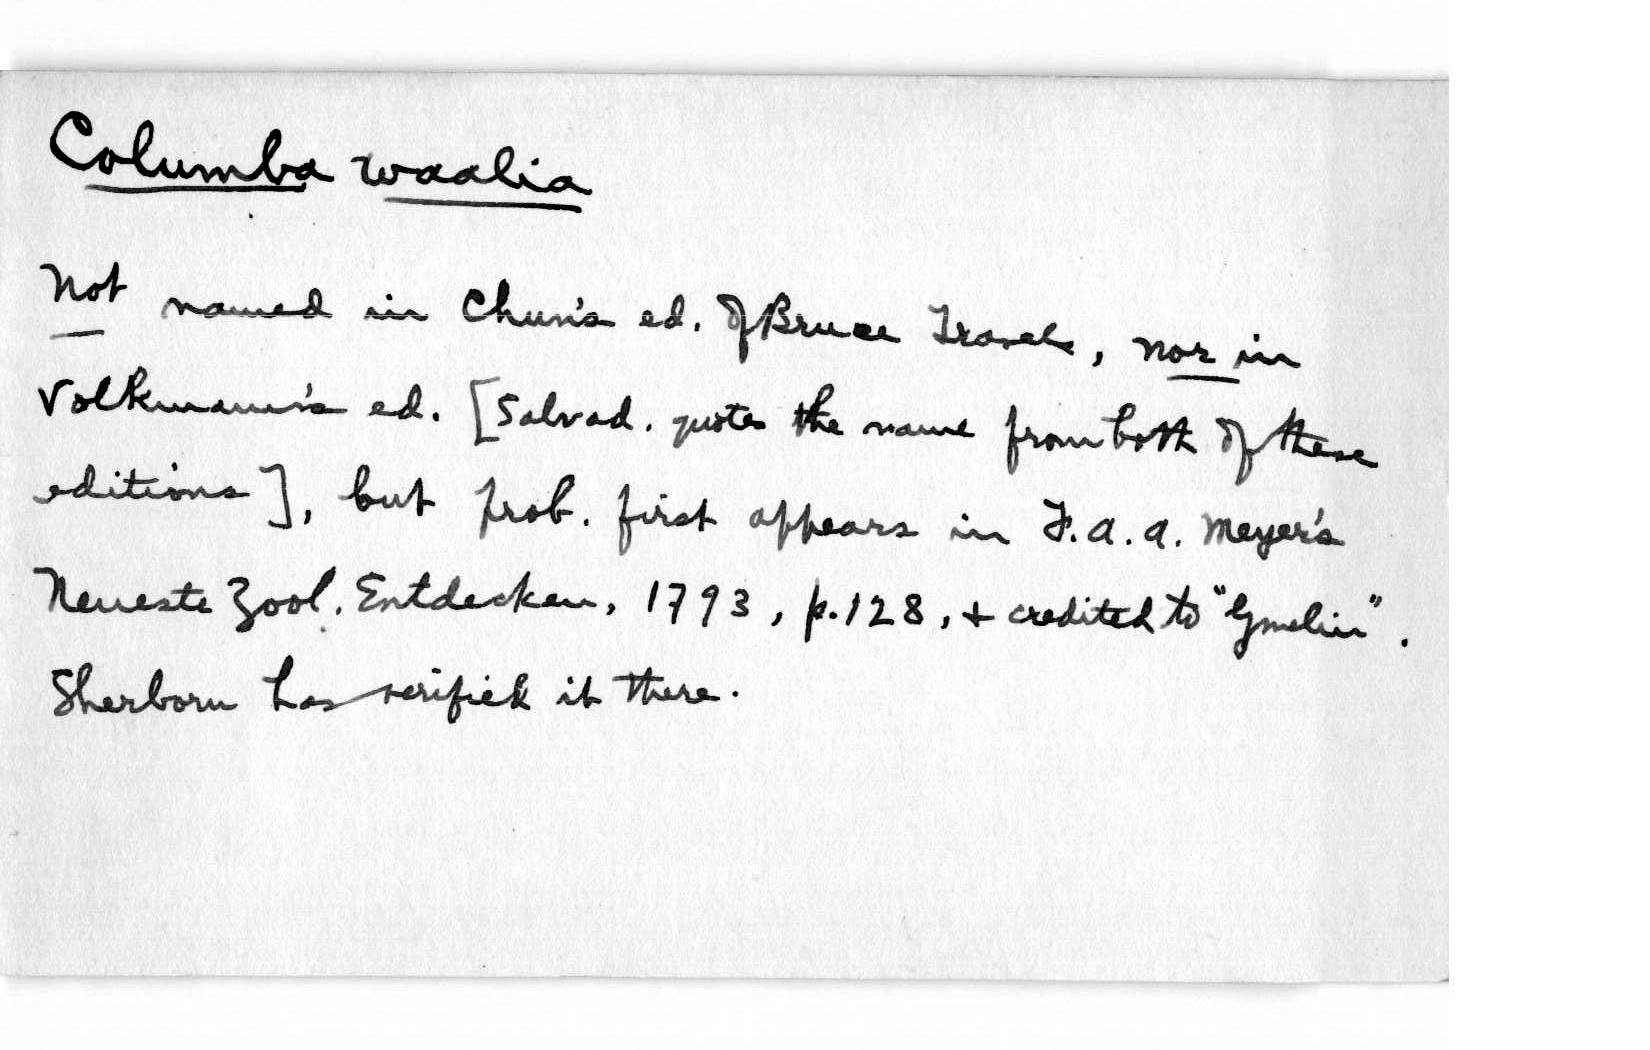 Columba waalia
Not named in Chun's ed. of Bruce Travels, nor in
Volkmann's ed. [Salvad. quotes the name from both of these
editions], but prob. first appears in F.A.A. Meyer's
Neueste Zool. Entdecken, 1793, p.128, + credited to "Gmelin".
Sherborn has verified it there.